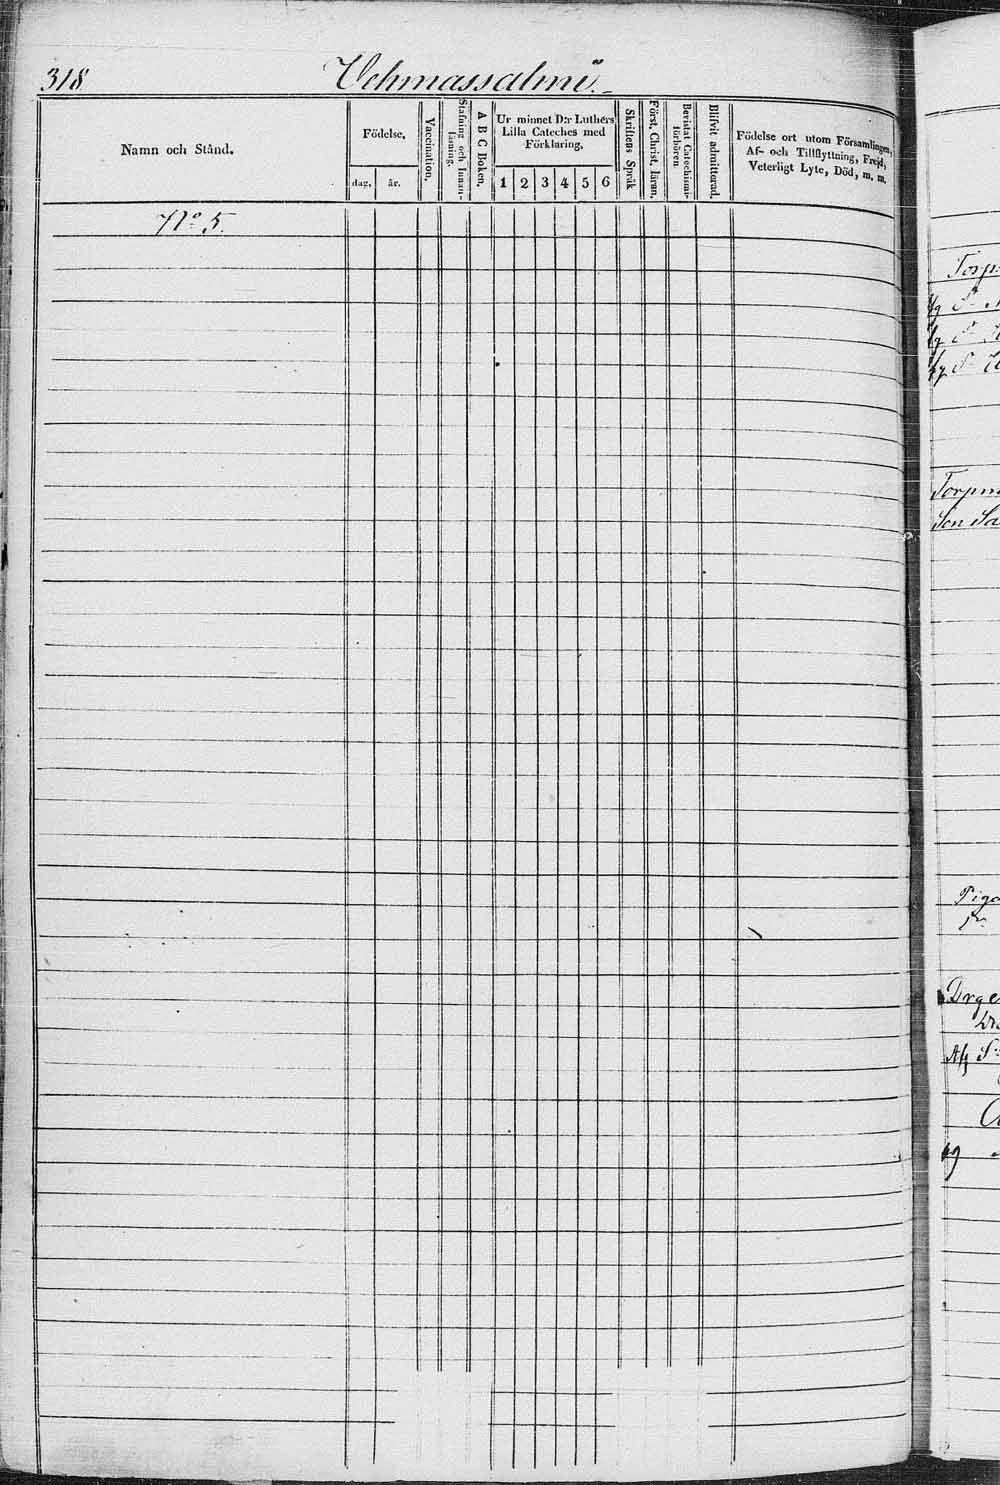 318
Vehmassalmi.
Namn och Stånd.
Födelse.
dag. år.
Vaccination.
Stafning och Innan-
läsning.
A B C Boken.
Ur minnet D:r Luthers
Lilla Cateches med
Förklaring.
1 2 3 4 5 6
Skriftens Språk
Först. Christ. läran.
Bevistat Catechismi-
förhören
Blifvit admitterad.
Födelse ort utom Församlingen,
Af- och Tillflyttning, Frejd,
Veterligt Lyte, Död, m. m.
No 5.